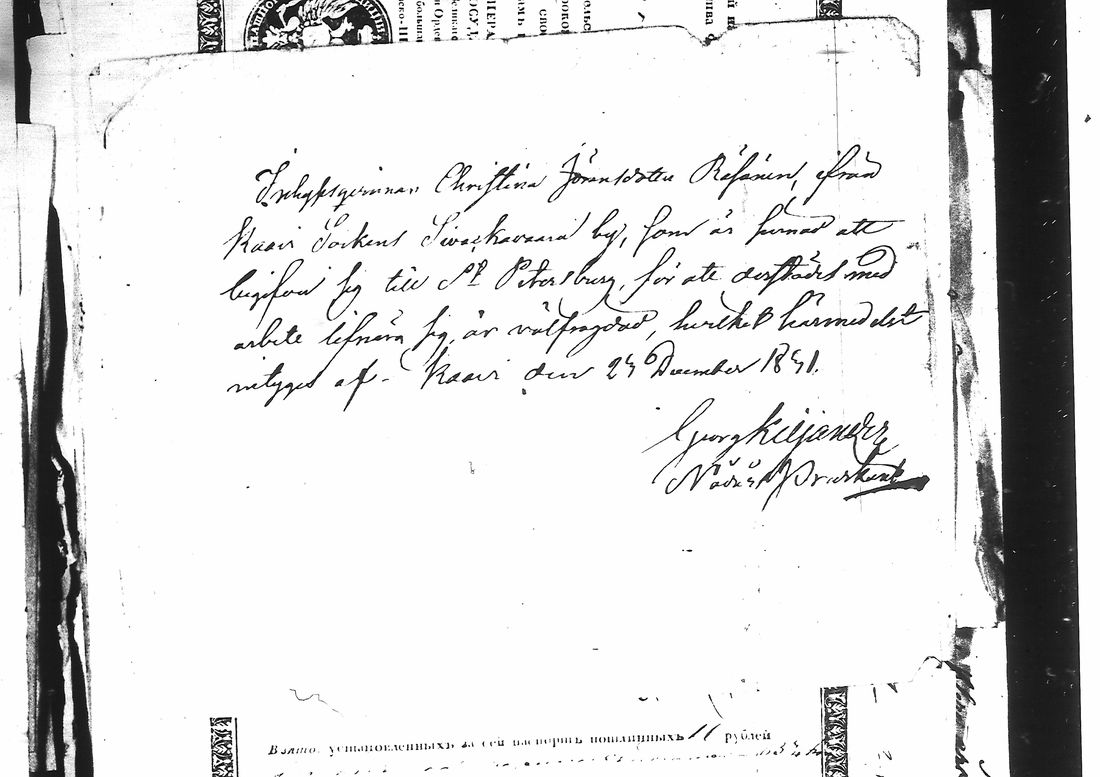 ПЕРА
ОСУД
Inhysqvinnan Christina Jöransdotter Räsänen, ifrån
Kaavi Sockens Sivackavaara by, som är sinnad att
begifva sig till St Petersburg, för att derstädes med
arbete lifnära sig, är välfragdad, hvilket härmedelst
intygges af - Kaavi den 24 December 1841.
Georg Kiljander
Nådår. Predikant
Взято: установленныхъ за сей паспортъ пошлинныхъ 11 рублей